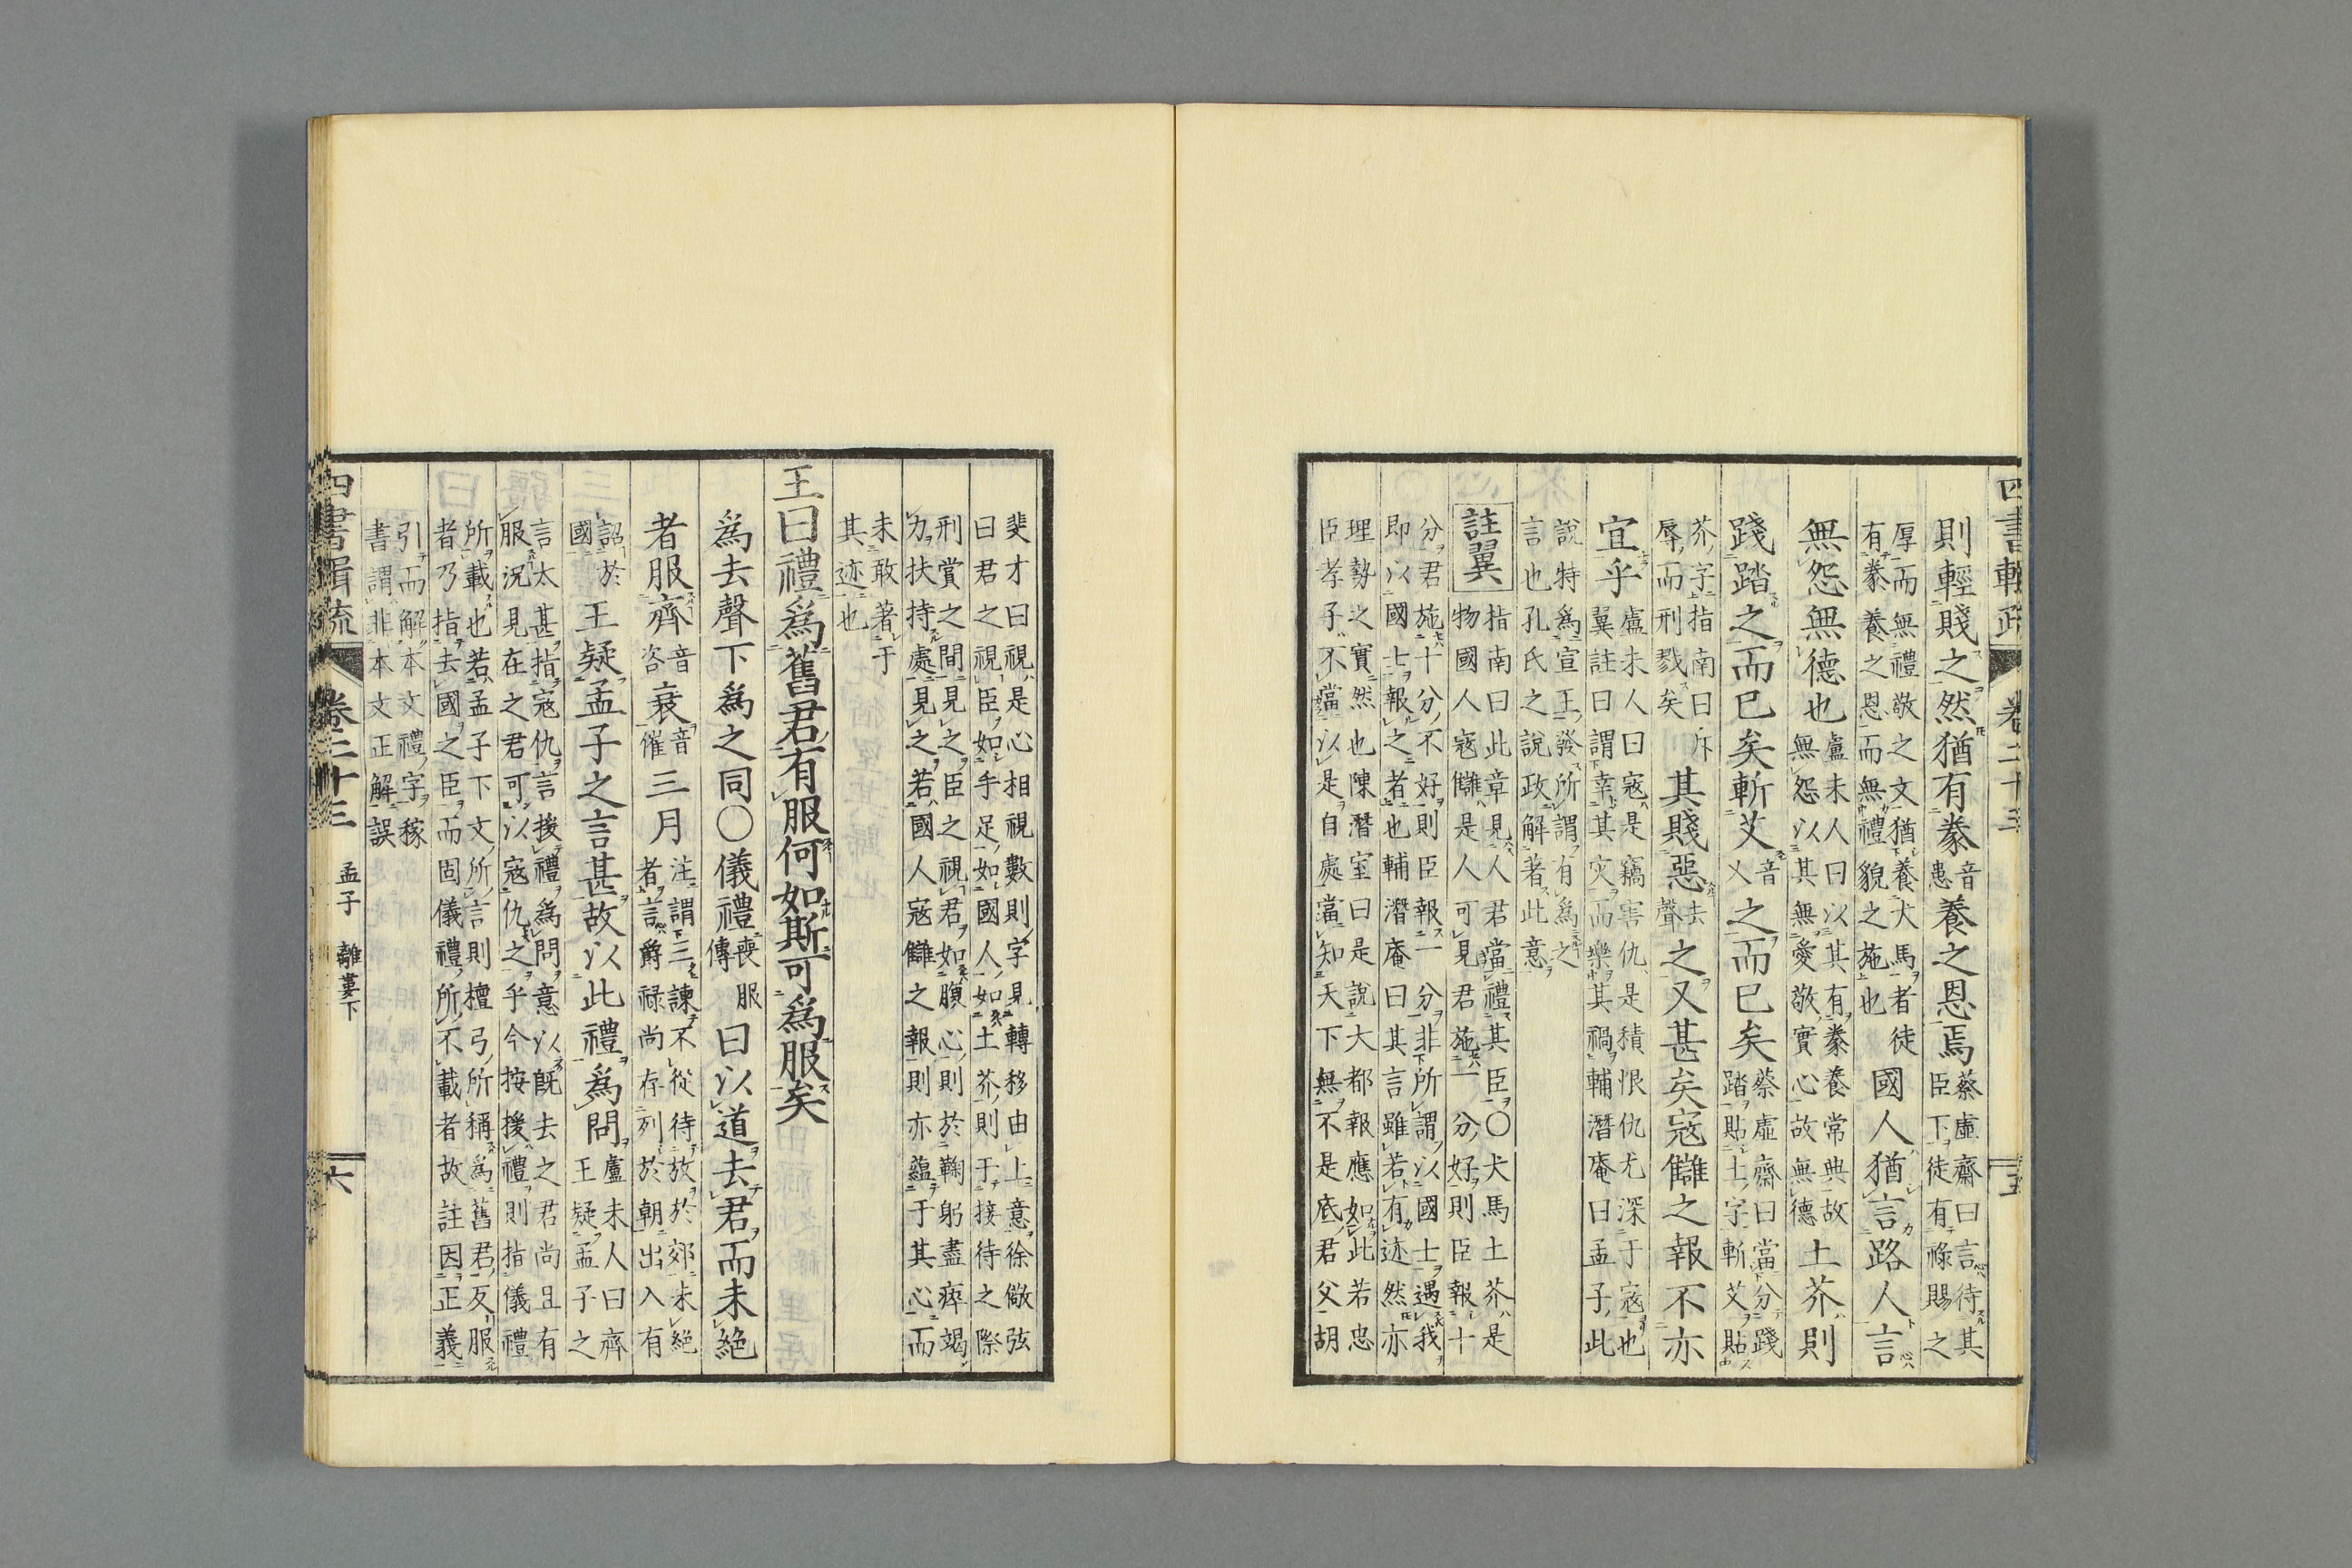 四書輯疏 卷二十三 五
則輕賤之然猶有豢音患養之恩焉蔡虛齋曰言待其
臣下徒有祿賜之
厚而無禮敬之文猶養犬馬者徒
有豢養之恩而無禮貌之施也國人猶言路人言
無怨無德也盧未人曰以其有豢養常典故
無怨以其無愛敬實心故無德土芥則
踐踏之而已矣斬艾音乂之而已矣蔡虛齋曰當分踐
踏貼土字斬艾貼
芥字指南曰斥
辱而刑戮矣其賤惡去聲之又甚矣寇讎之報不亦
宜乎盧未人曰寇是竊害仇是積恨仇尤深于寇也
翼註曰謂幸其灾而樂其禍輔潛庵曰孟子此
說特爲宣王發所謂有爲之
言也孔氏之說政解著此意
註翼指南曰此章見人君當禮其臣〇犬馬土芥是
物國人寇讎是人可見君施一分好則臣報十
分君施十分不好則臣報一分非所謂以國士遇我
即以國士報之者也輔潛庵曰其言雖若有迹然亦
理勢之實然也陳潛室曰是說大都報應如此若忠
臣孝子不當以是自處當知天下無不是底君父胡
斐才曰視是心相視數則字見轉移由上意徐儆弦
曰君之視臣如手足如國人如土芥則于接待之際
刑賞之間見之臣之視君如腹心則於鞠躬盡瘁竭
力扶持處見之若國人寇讎之報則亦蘊于其心而
未敢著于
其迹也
王曰禮爲舊君有服何如斯可爲服矣
爲去聲下爲之同〇儀禮喪服傳曰以道去君而未絕
者服齊音咨衰音催三月注謂三諫不從待放於郊未絕
者言爵祿尚存列於朝出入有
詔於
國王疑孟子之言甚故以此禮爲問盧未人曰齊
王疑孟子之
言太甚指寇仇言援禮爲問意以既去之君尚且有
服況見在之君可以寇仇之乎今按援禮則指儀禮
所載也若孟子下文所言則檀弓所稱爲舊君反服
者乃指去國之臣而固儀禮所不載者故註因正義
引而解本文禮字稼
書謂非本文正解誤
四書輯疏 卷二十三 孟子 離婁下 六